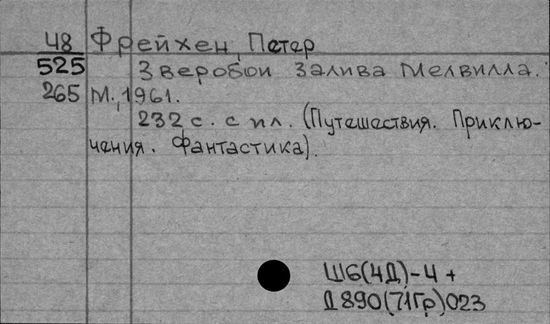 48 Фрейхен, Петер
525 Зверобои залива Мелвилла.
265 М., 1961.
232 с. с ил. (Путешествия. Приклю-
чения. Фантастика).
Ш6(4Д)-4 +
Д890(71Гр)023